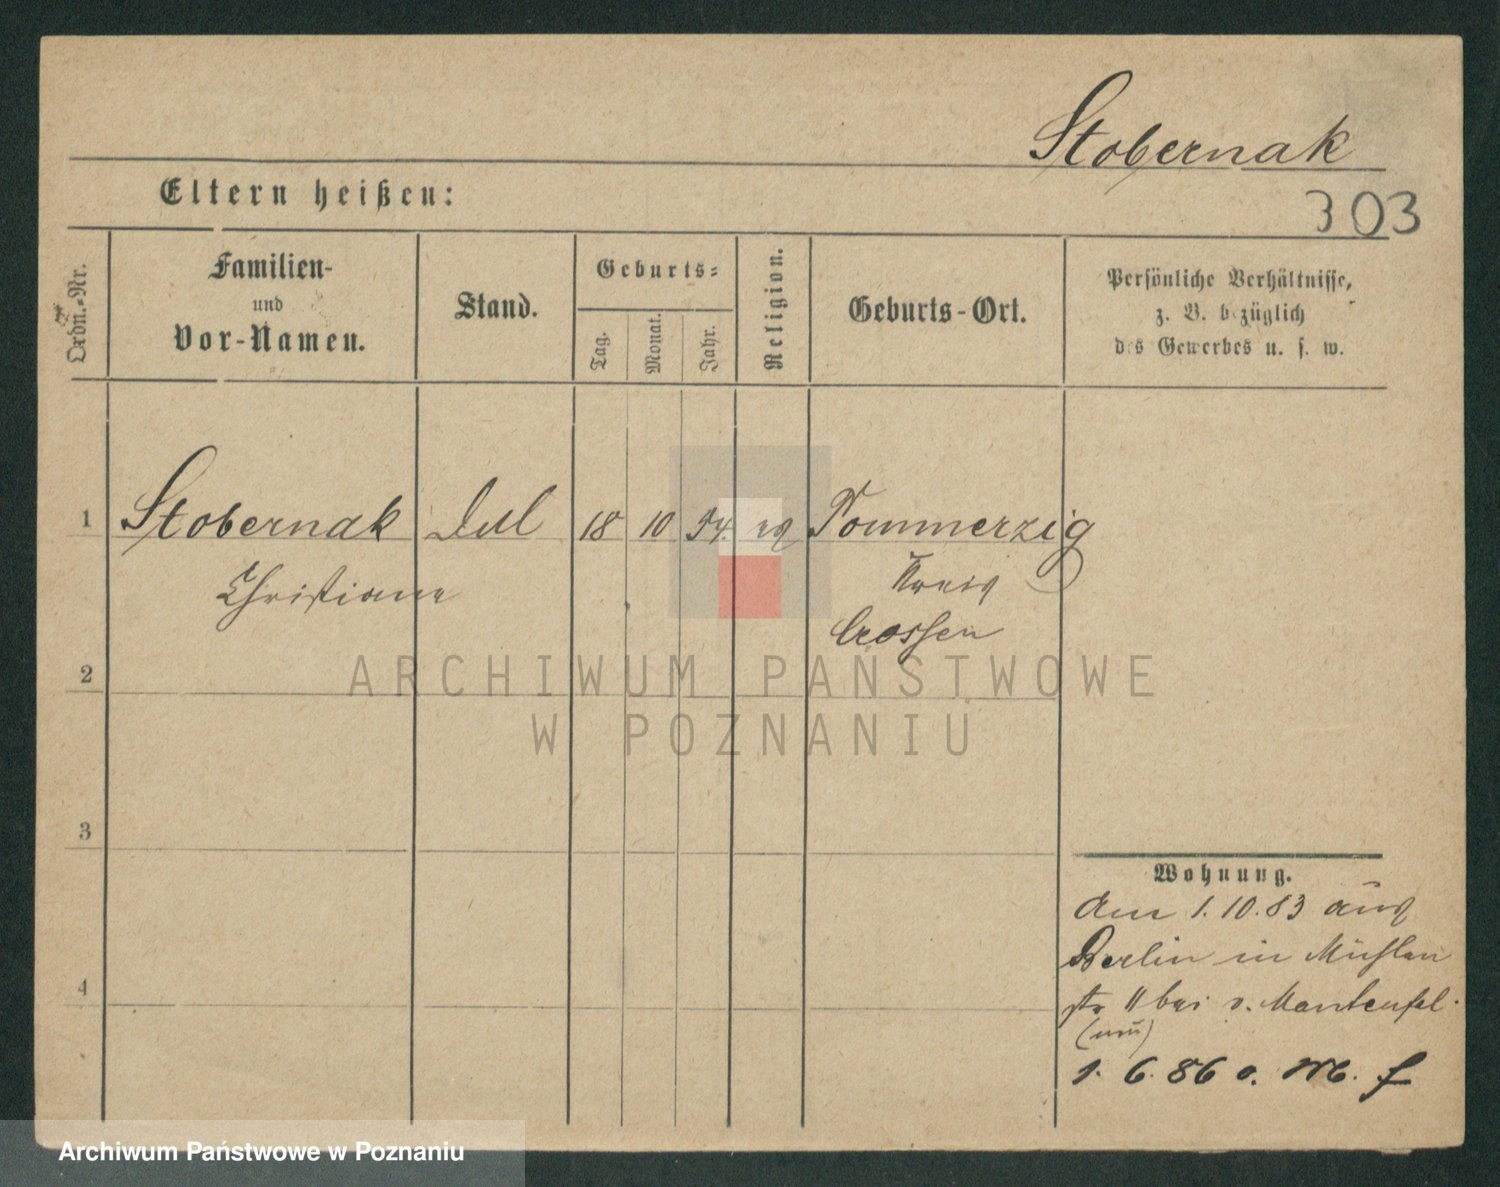 Stobernak
303
Eltern heißen:
Ordn.-Nr.
Familien-
und
Vor-Namen.
Stand.
Geburts-
Tag.
Monat.
Jahr.
Religion.
Geburts-Ort.
Persönliche Verhältnisse,
z. B. bezüglich
des Gewerbes u. s. w.
1
Stobernak
18
10
54.
Pommerzig
Christiane
Kreis
Crossen
2
ARCHIWUM PAŃSTWOWE
W POZNANIU
3
Wohnung.
Am 1.10.83 aus
Berlin in Mühlen
4
str 11 bei v. Manteufel.
(neu)
1. 6. 86 o. M. f
Archiwum Państwowe w Poznaniu